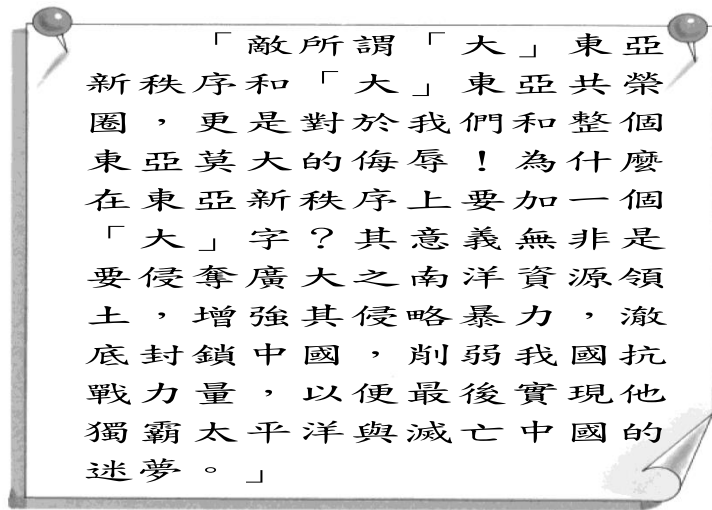 「敵所謂「大」東亞
新秩序和「大」東亞共榮
圈，更是對於我們和整個
東亞莫大的侮辱！為什麼
在東亞新秩序上要加一個
「大」字？其意義無非是
要侵奪廣大之南洋資源領
土，增強其侵略暴力，澈
底封鎖中國，削弱我國抗
戰力量，以便最後實現他
獨霸太平洋與滅亡中國的
迷夢。」